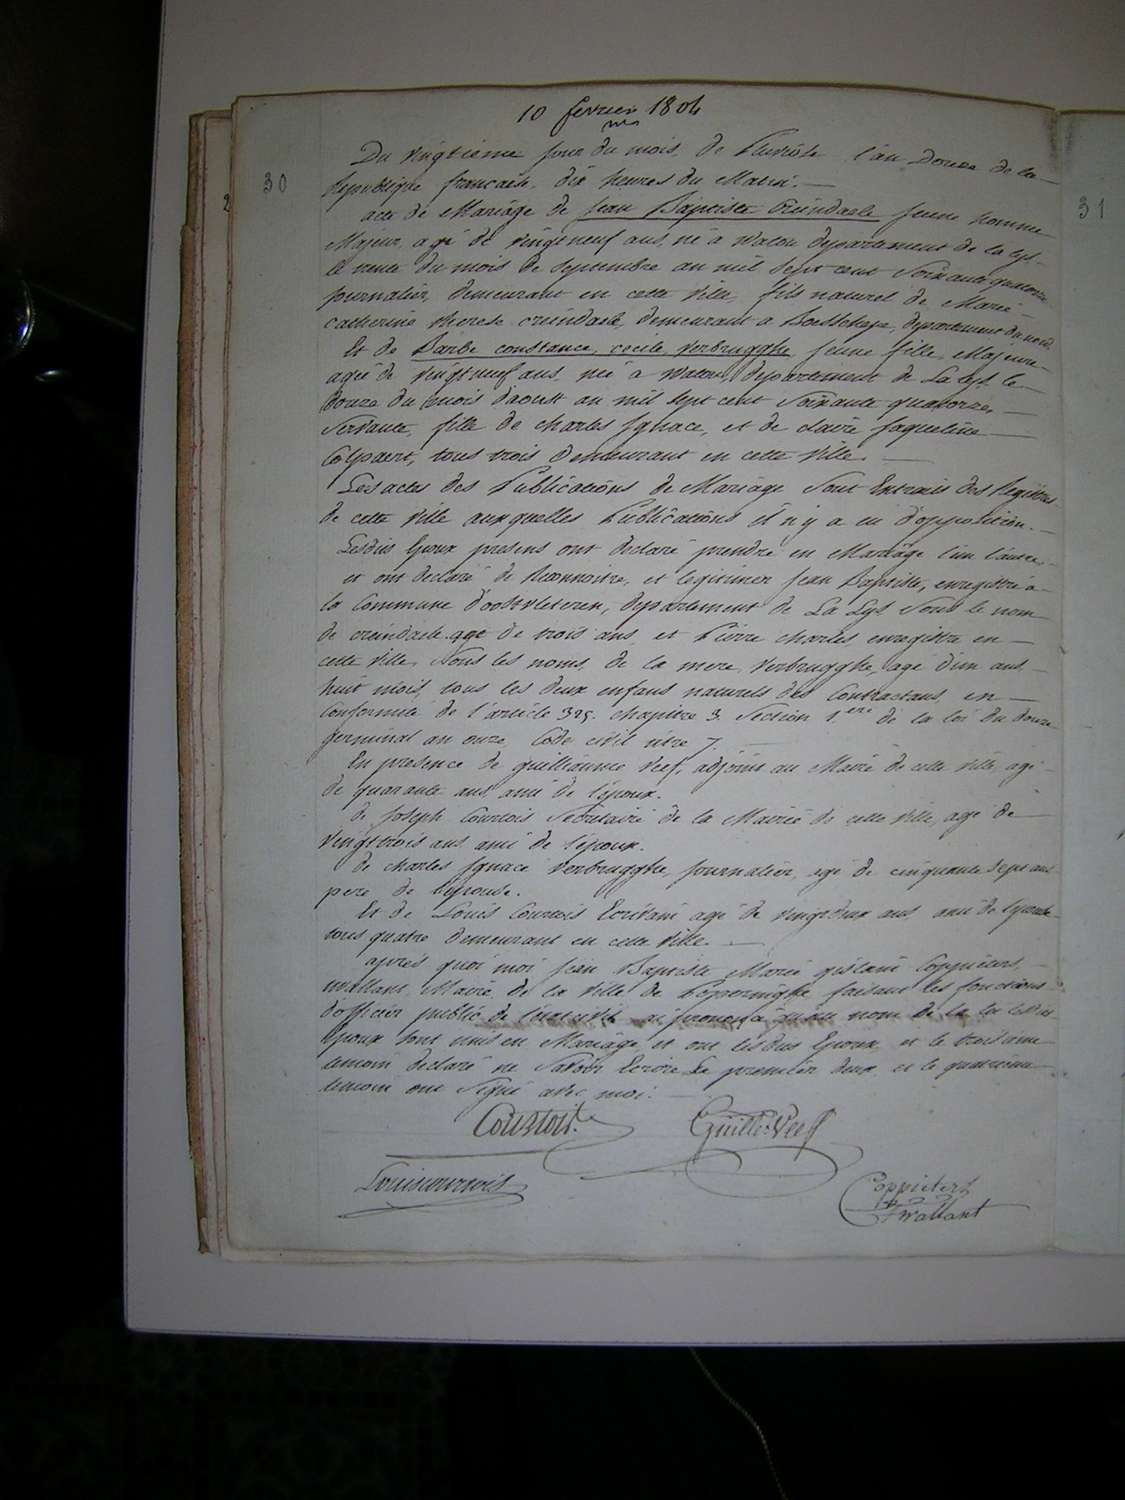 10 fevrier 1804
30
31
2
Du vingtieme jour du mois de Pluviôse l'an Douze de la
Republique francaise, dix heures du Matin.
acte de Mariage de Jean Baptiste Creindaele jeune homme
Majeur, agé de vingt neuf ans, né à Watou departement de la Lys
le trente du mois de Septembre an mil sept cent Soixante quatorze
journalier, demeurant en cette ville, fils naturel de Marie
catherine therese creindaele, demeurant a Boesschepe, departement du nord.
Et de Barbe constance cecile verbrugghe jeune fille Majeure
agée de vingt neuf ans, née a Watou, departement de La Lys le
douze du mois d'aoust an mil sept cent Soixante quatorze,
Servante, fille de charles Ignace, et de Marie Jaqueline
Colpaert, tous trois demeurant en cette ville.
Les actes des Publications de Mariage Sont Extraits des Régistres
de cette ville auxquelles Publications il n'y a eu d'opposition.
Lesdits Epoux presens ont declaré prendre en Mariage l'un l'autre,
et ont declaré de Reconnoitre, et legitimer Jean Baptiste, enregistré a
la Commune d'oostvleteren, departement de La Lys Sous le nom
de creindaele agé de trois ans, et Pierre charles, enregistré en
cette ville, Sous les noms de la mere, verbrugghe, agé d'un ans
huit mois, tous les deux enfans naturels des Contractans, en
Conformité de l'article 325. chapitre 3. Section 1.ere de la loi du douze
germinal an onze, Code civil titre 7.
En presence de guilliaume Veef, adjoint au Maire de cette ville, agé
de quarante ans ami de l'epoux.
de Joseph Courtois Secretaire de la Mairie de cette ville, agé de
vingt trois ans ami de l'epoux.
de charles Ignace Verbrugghe, journalier, agé de cinquante sept ans
pere de l'epouse.
Et de Louis Courtois Ecrivain agé de vingt deux ans ami de l'epouse
tous quatre demeurant en cette ville.
après quoi moi Jean Baptiste Marie gislain Coppieters
wallant, Maire de la ville de Poperinghe faisant les fonctions
d'officier public de l'etat civil ai prononcé qu'au nom de la loi lesdits
Epoux sont unis en Mariage, et ont lesdits Epoux et le troisieme
temoin declaré ne Savoir Ecrire Le premier deux, et le quatrieme
temoin ont Signé avec moi.
Courtois
Guille: Veef
Louis courtois
Coppieters
t'wallant